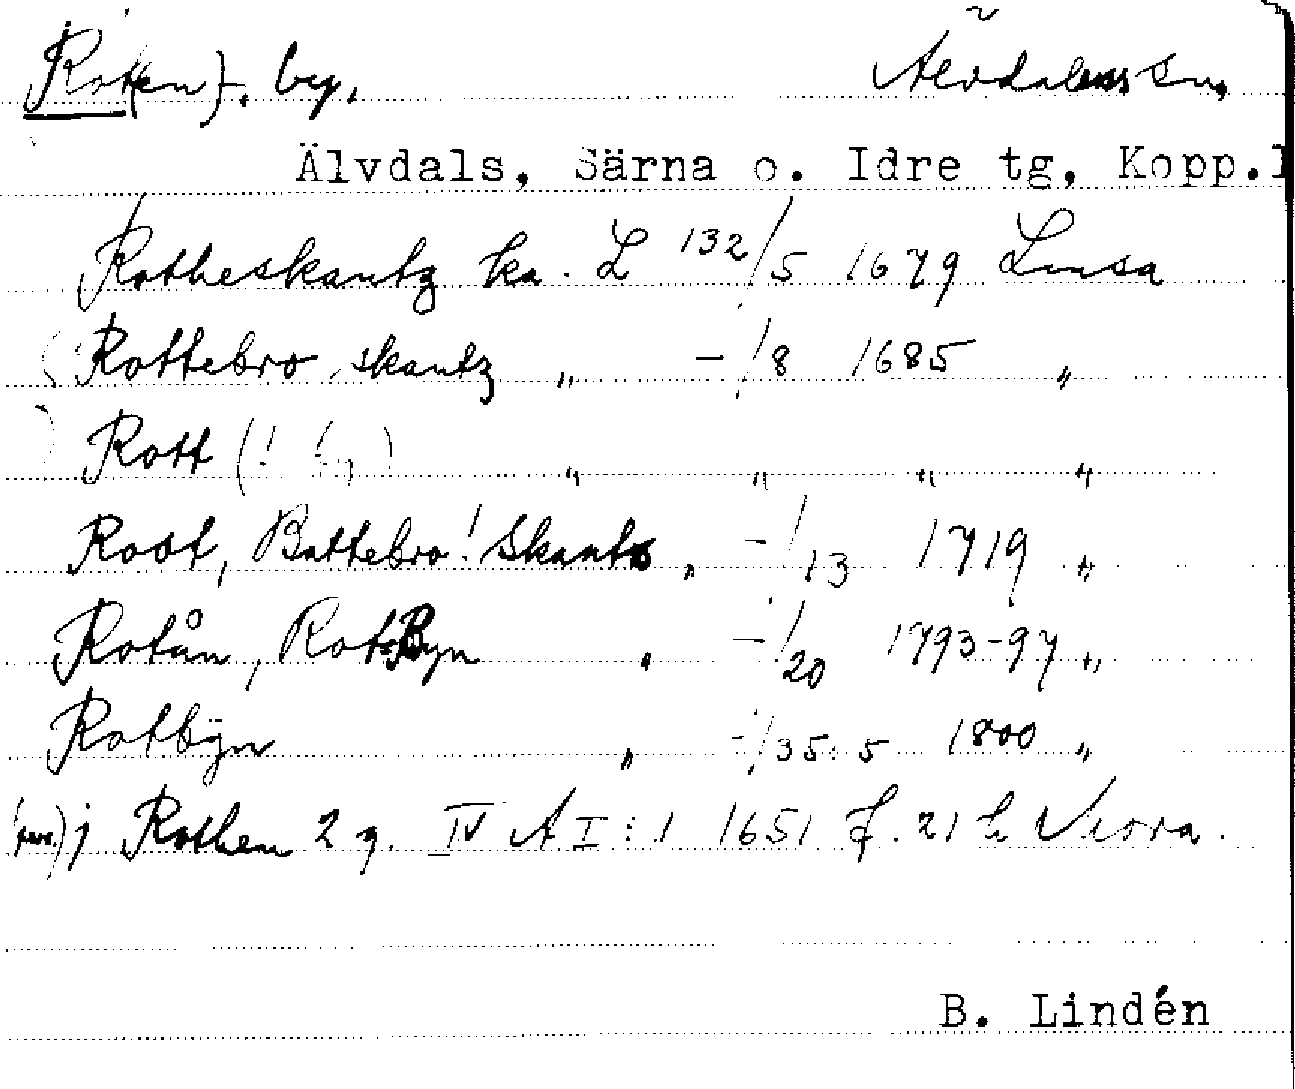 Rot(en). by. Älvdalens sn,
Älvdals, Särna o. Idre tg, Kopp.l
Rotheskantz ka. L 132/5 1679 Lmsa
Rottebro skantz „ -/8 1685 „
Rott (! „ „ „ „
Root, Battebro! Skants „ -/13 1719 „
Rotån, RotByn „ -/20 1793-97 „
Rotbÿn „ -/35:5 1800 „
j Rothen 2 g. IV A I:1 1651 f. 21
B. Lindén